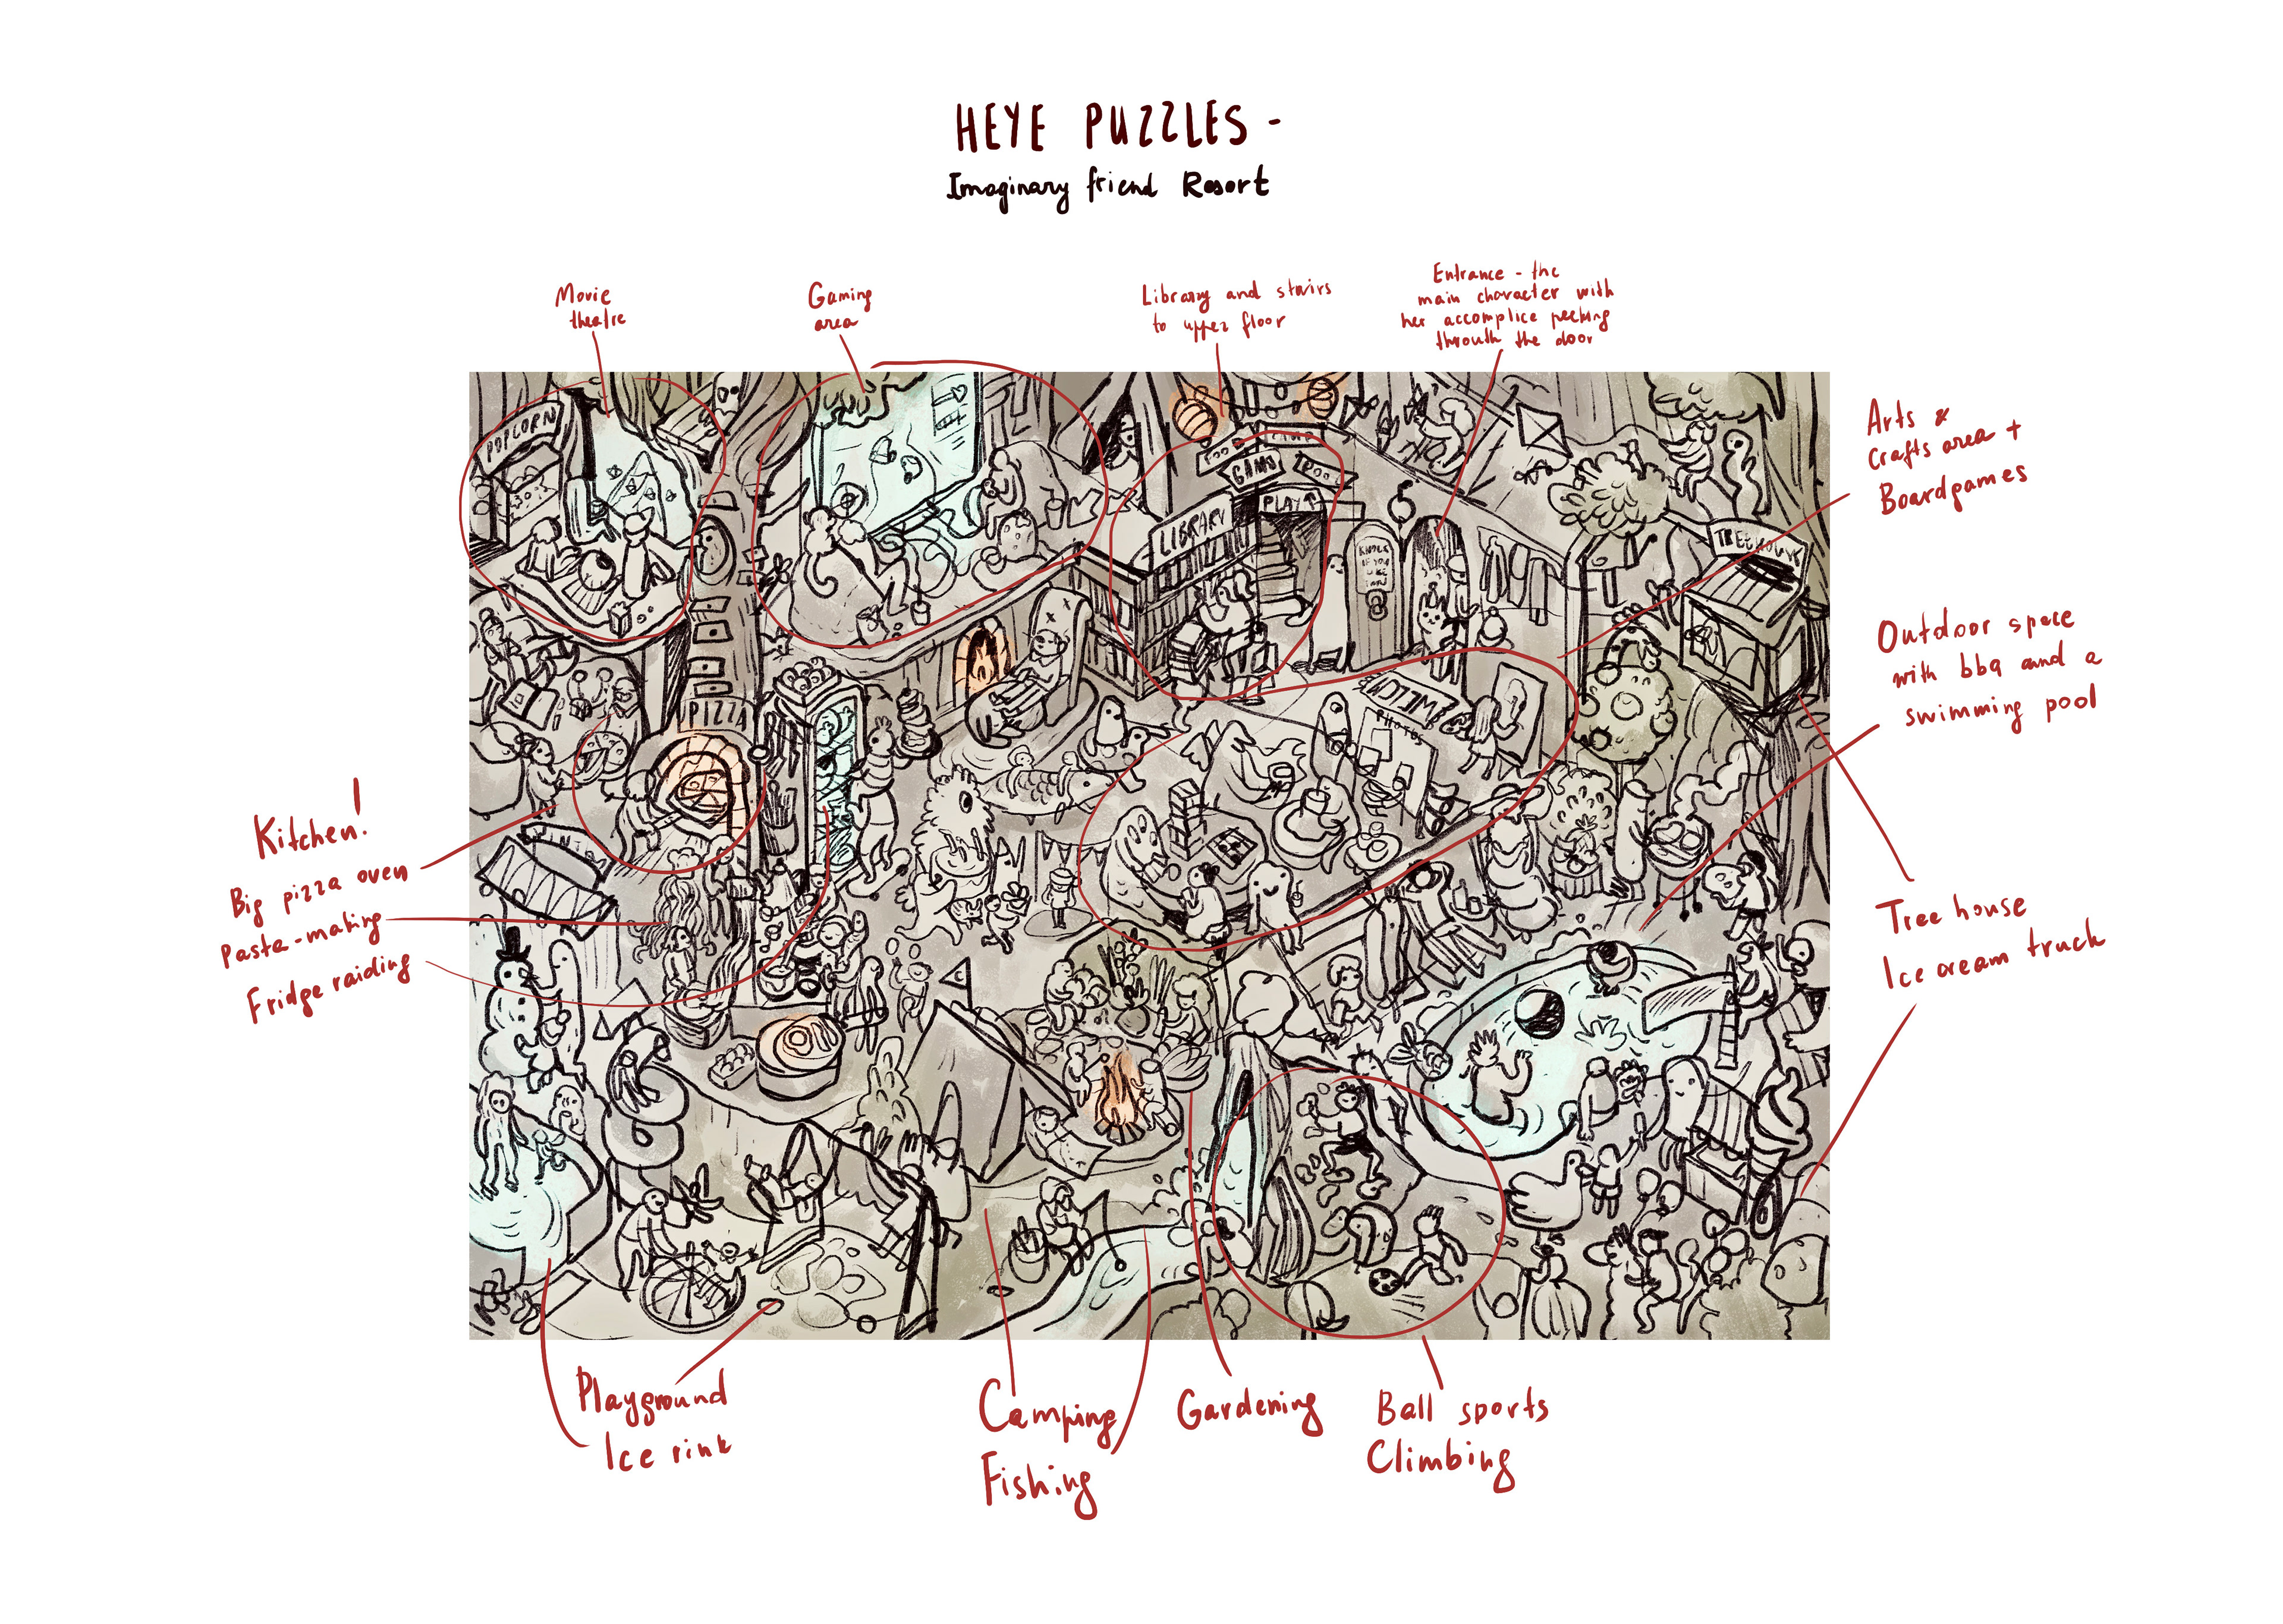 HEYE PUZZLES -
Imaginary friend Resort
Movie
theatre
Gaming
area
Library and stairs
to upper floor
Entrance - the
main character with
her accomplice peeking
throuth the door
Arts &
crafts area +
Boardgames
Outdoor space
with bbq and a
swimming pool
Tree house
Ice cream truck
Kitchen!
Big pizza oven
Pasta-making
Fridge raiding
Playground
Ice rink
Camping
Fishing
Gardening
Ball sports
Climbing
POPCORN
GAME
PLAY↑
LIBRARY
KNOCK
IF YOU
TREEHOUSE
PIZZA
PHOTOS